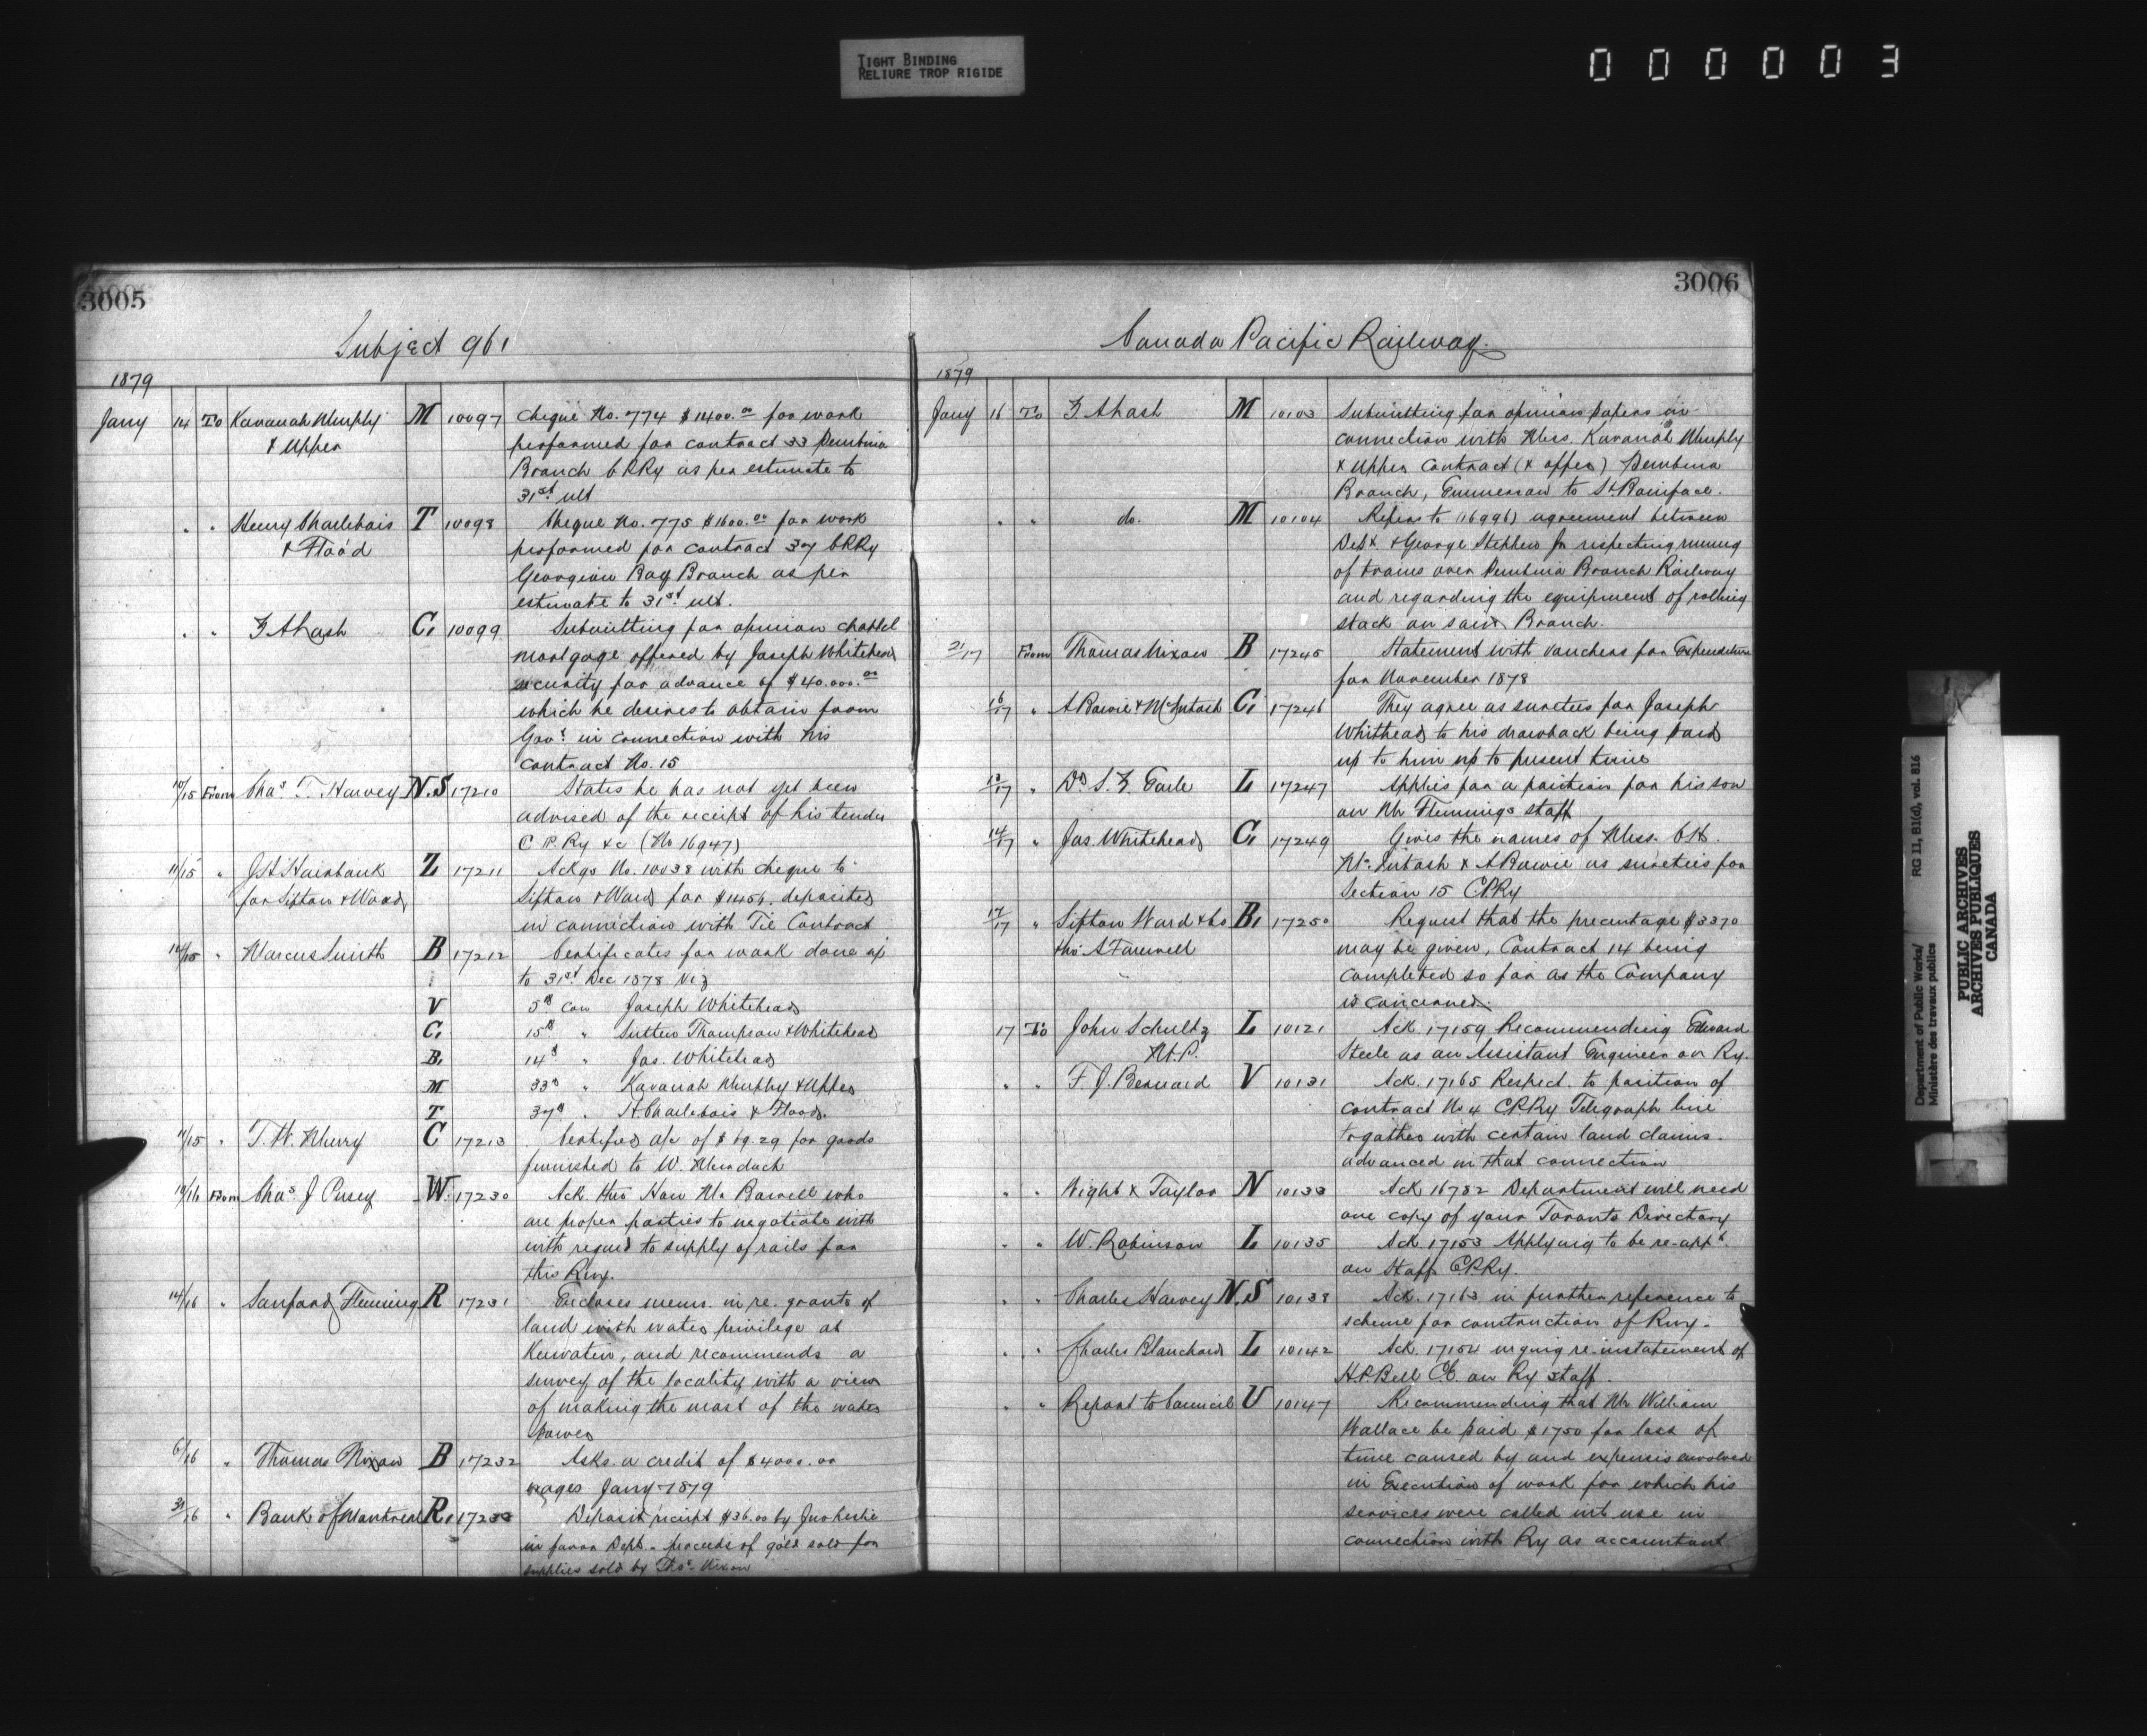 TIGHT BINDING
RELIURE TROP RIGIDE
000003
3005
Subject 961
1879
Jany 14 To Kavanah Murphy M 10097 Cheque No. 774 $1400.00 for work
& Upper performed for contract 33 Pembina
Branch CPRy as per estimate to
31st ult
" " Henry Charlebois T 10098 Cheque No. 775 $1600.00 for work
& Flood performed for contract 37 CPRy
Georgian Bay Branch as per
estimate to 31st ult.
" " Z A Lash C1 10099 Submitting for opinion chattel
mortgage offered by Joseph Whitehead
security for advance of $40.000.00
which he desires to obtain from
Govt in connection with his
contract No. 15
10/15 From Chas T. Harvey N.S 17210 States he has not yet been
advised of the receipt of his tender
C P. Ry &c (No 16947)
11/15 " J H Fairbank Z 17211 Ackgs No. 10038 with cheque to
for Sifton & Ward Sifton & Ward for $1456. deposited
in connection with Tie Contract
14/15 " Marcus Smith B 17212 Certificates for work done up
to 31st Dec 1878 Viz
V 5th Con Joseph Whitehead
C1 15th " Sutton Thompson & Whitehead
B1 14th " Jos. Whitehead
M 33rd " Kavanah Murphy & Upper
T 37th " H. Charlebois & Flood.
11/15 " T. W. Murry C 17213 Certified a/c of $69.29 for goods
furnished to W. Murdoch
10/16 From Chas J Pusey W. 17230 Ack. thro Hon Mr Bowell who
are proper parties to negotiate with
with regard to supply of rails for
this Rwy.
14/16 " Sanford Fleming R 17231 Encloses mem. in re. grants of
land with water privilege at
Keewatin, and recommends a
survey of the locality with a view
of making the most of the water
power
6/16 " Thomas Nixon B 17232 Asks a credit of $4000.00
wages Jany 1879
31/16 " Bank of Montreal R1 17233 Deposit receipt $36.00 by Jno Leslie
in favor Dept. proceeds of gold sold for
supplies sold by Thos Nixon
3006
Canada Pacific Railway.
1879
Jany 16 To Z A Lash M 10103 Submitting for opinion papers in
connection with Mess. Kavanah Murphy
& Upper contract (& offer) Pembina
Branch, Emmerson to St Boniface.
" " do. M 10104 Refers to (16996) agreement between
Dept. & George Stephen Jr respecting running
of trains over Pembina Branch Railway
and regarding the equipment of rolling
stock on said Branch.
31/17 From Thomas Nixon B 17245 Statement with vouchers for Expenditure
for November 1878
16/17 " A Bowie & McIntosh C1 17246 They agree as sureties for Joseph
Whithead to his drawback being paid
up to him up to present time
13/17 " Dr S. Z. Earle L 17247 Applies for a position for his son
on Mr Flemings staff
14/17 " Jos. Whitehead C1 17249 Gives the names of Mess. C H.
McIntosh & A Bowie as sureties for
Section 15 CPRy
17/17 " Sifton Ward & Co B1 17250 Request that the precentage $3370
thro A Farewell may be given, Contract 14 being
completed so far as the Company
is concerned.
17 To John Schultz L 10121 Ack. 17159 Recommending Edward
M.P. Steele as an Assistant Engineer on Ry.
" " F. J. Bernard V 10131 Ack. 17165 Respect. to position of
contract No 4 CPRy Telegraph line
together with certain land claims.
advanced in that connection
" " Might & Taylor N 10133 Ack 16782 Department will need
one copy of your Toronto Directory
" " W. Robinson L 10135 Ack. 17153 Applying to be re-appt.
on Staff CPRy.
" " Charles Harvey N.S 10138 Ack. 17163 in further reference to
scheme for construction of Rwy.
" " Charles Blanchard L 10142 Ack. 17154 urging re-instatement of
H.P. Bell CE. on Ry staff.
" " Report to Council U 10147 Recommending that Mr William
Wallace be paid $1750 for loss of
time caused by and expenses involved
in Execution of work for which his
services were called into use in
connection with Ry as accountant
Department of Public Works/ RG 11, B1(d), vol. 816
Ministère des travaux publics
PUBLIC ARCHIVES
ARCHIVES PUBLIQUES
CANADA